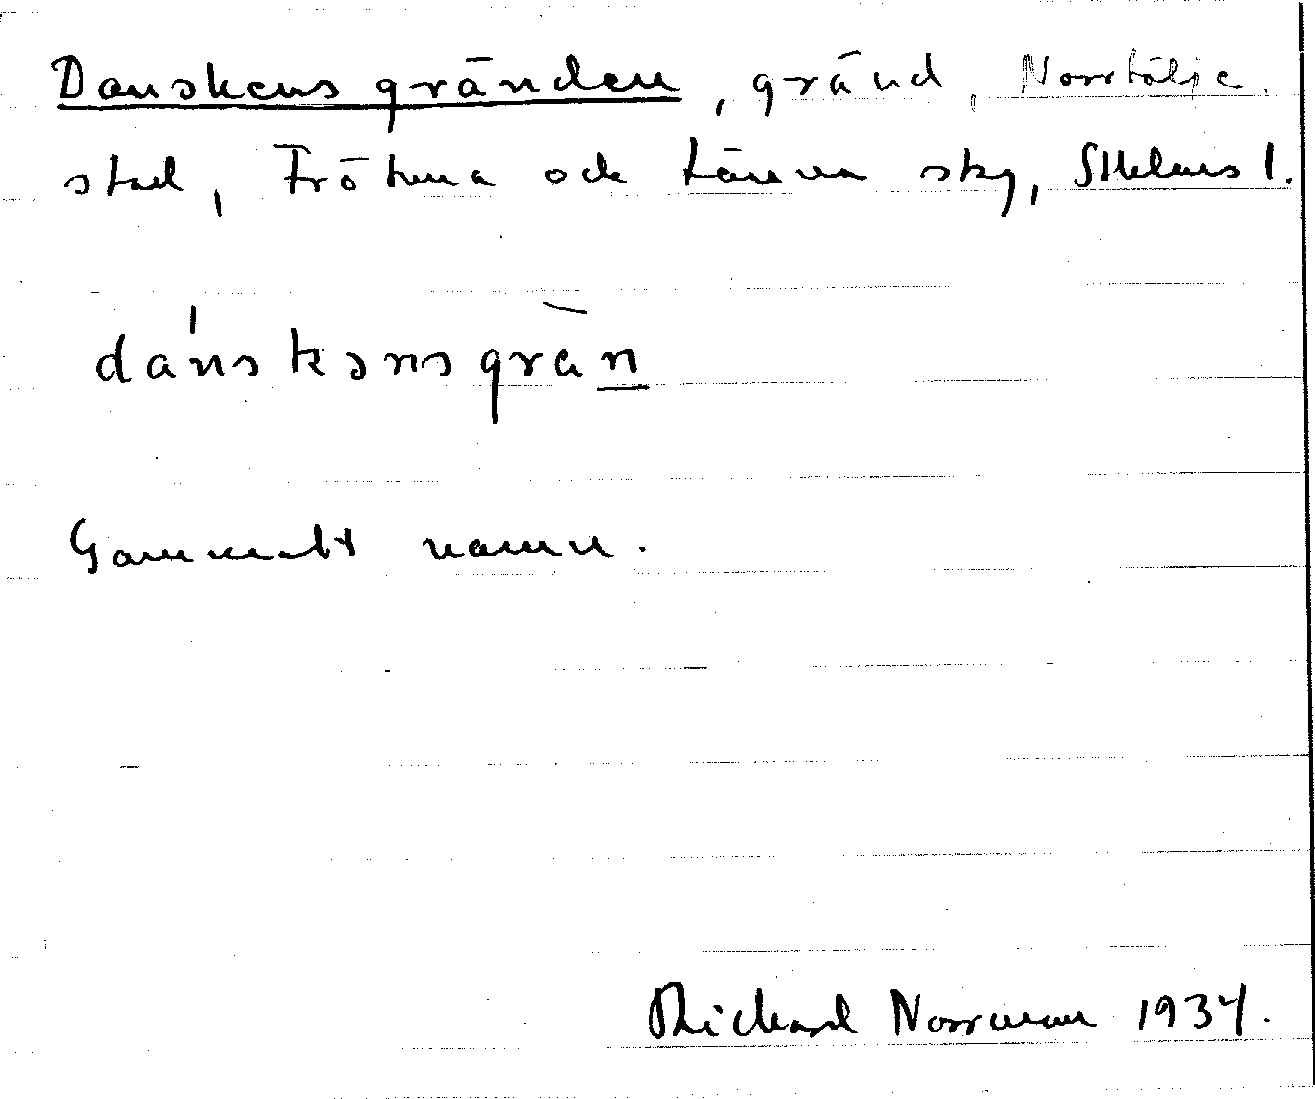 Danskens gränden, gränd, Norrtälje
stad, Frötuna och Länna skg, Sthlms l.
dánskənsgrän
Gammalt namn.
Rickard Norrman 1934.